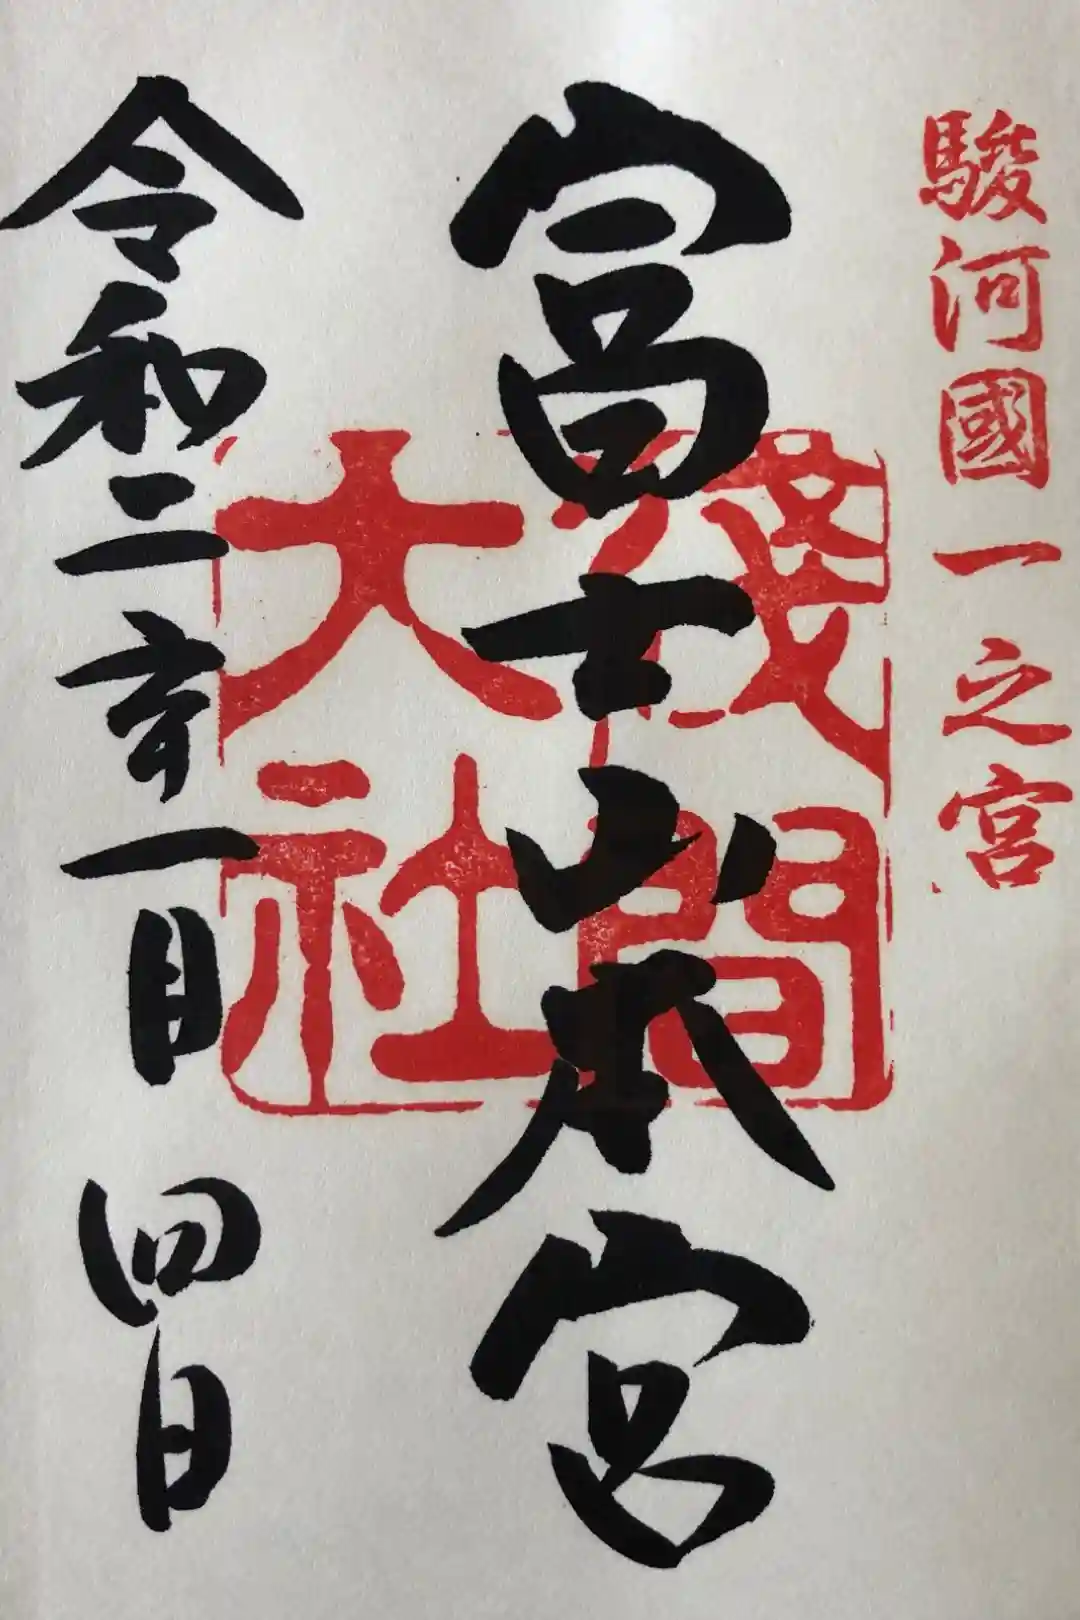 駿河國一之宮
富士山本宮
淺間大社
令和二年一月四日